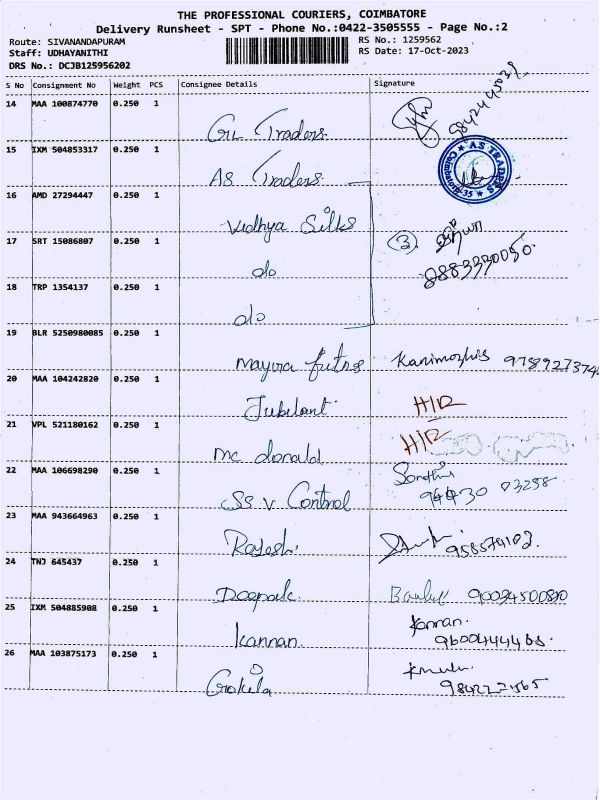 THE PROFESSIONAL COURIERS, COIMBATORE
Delivery Runsheet - SPT - Phone No.:0422-3505555 - Page No.:2
Route: SIVANANDAPURAM
Staff: UDHAYANITHI
DRS No.: DCJB125956202
RS No.: 1259562
RS Date: 17-Oct-2023
S No Consignment No Weight PCS Consignee Details Signature
14 MAA 100874770 0.250 1
Traders
15 IXM 504853317 0.250 1
AS Traders
AS TRADERS
Coimbatore-35
16 AMD 27294447 0.250 1
Vidhya Silks
17 SRT 15086807 0.250 1
do
3.
18 TRP 1354137 0.250 1
do
19 BLR 5250980085 0.250 1
Mayura
20 MAA 104242820 0.250 1
Jubilant
H/R
21 VPL 521180162 0.250 1
Mc donald
H/R
22 MAA 106698290 0.250 1
SS V Control
94430 03258
23 MAA 943664963 0.250 1
Rajesh
24 TNJ 645437 0.250 1
Deepak
25 IXM 504885908 0.250 1
Kannan
Kannan.
26 MAA 103875173 0.250 1
Gokila